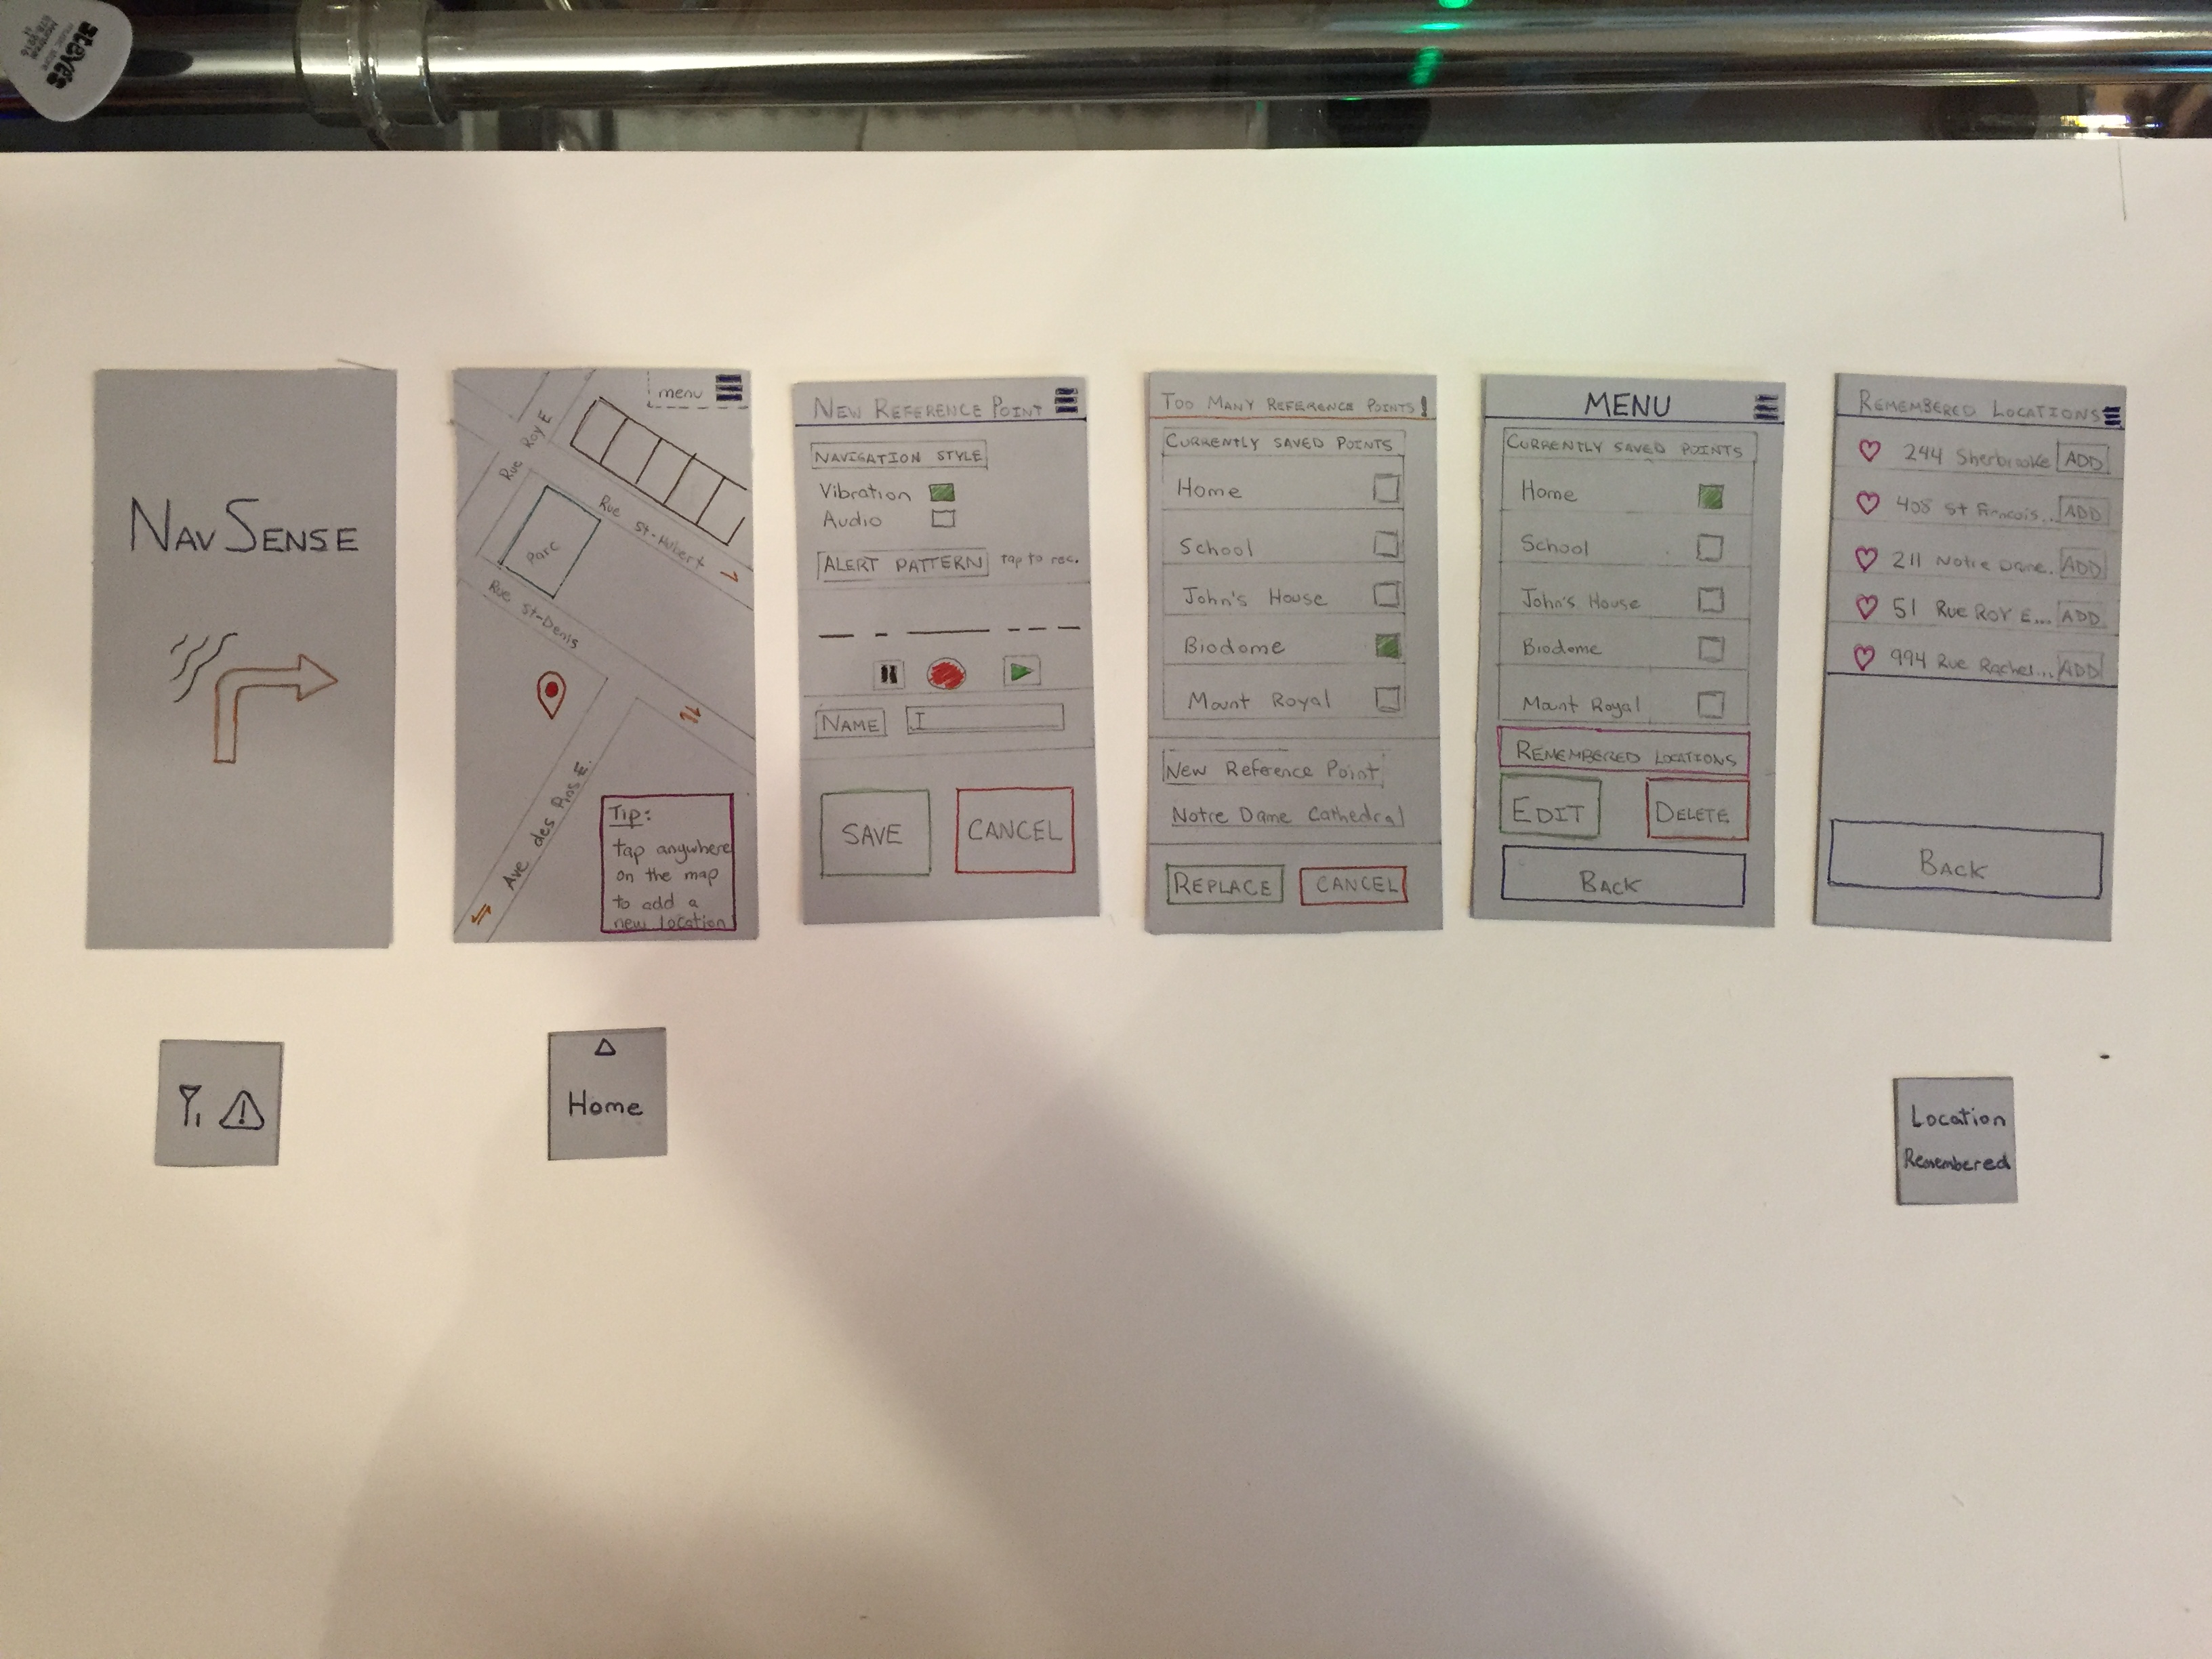 NAV SENSE
menu
Rue Roy E
parc
Rue St-Denis
Ave des Pins E.
Tip:
tap anywhere
on the map
to add a
new location
NEW REFERENCE POINT
NAVIGATION STYLE
Vibration
Audio
ALERT PATTERN tap to rec.
NAME
SAVE CANCEL
TOO MANY REFERENCE POINTS!
CURRENTLY SAVED POINTS
Home
School
John's House
Biodome
Mount Royal
New Reference Point
Notre Dame Cathedral
REPLACE CANCEL
MENU
CURRENTLY SAVED POINTS
Home
School
John's House
Biodome
Mount Royal
REMEMBERED LOCATIONS
EDIT DELETE
BACK
REMEMBERED LOCATIONS
244 Sherbrooke ADD
408 St Francois... ADD
211 Notre Dame.. ADD
51 Rue ROY E... ADD
994 Rue Rachel... ADD
BACK
Home
Location
Remembered
steve's
music store
Montreal